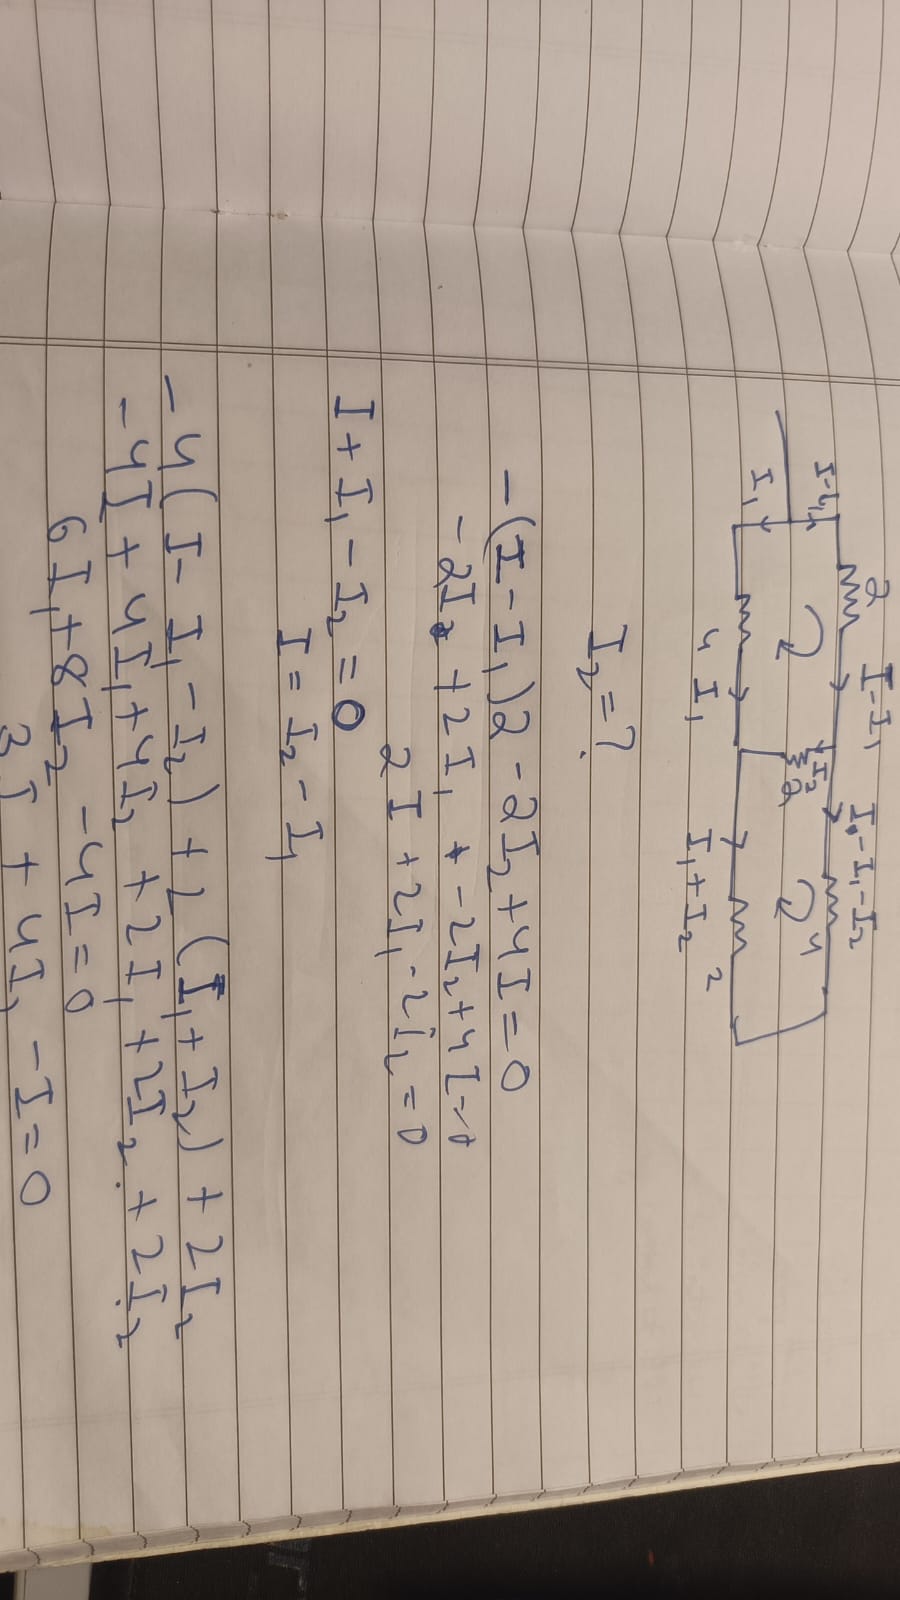 2 I-I₁ I-I₁-I₂
I-I₁ I₂ 2 4
I₁
4 I₁ I₁+I₂ 2
I₂=?
-(I-I₁)2 -2I₂+4I=0
-2I + 2I₁ -2I₂+4I=0
2I +2I₁-2I₂=0
I+I₁-I₂=0
I=I₂-I₁
-4(I-I₁-I₂)+2(I₁+I₂)+2I₂
-4I+4I₁+4I₂+2I₁+2I₂+2I₂
6I₁+8I₂-4I=0
3I+4I₁-I=0